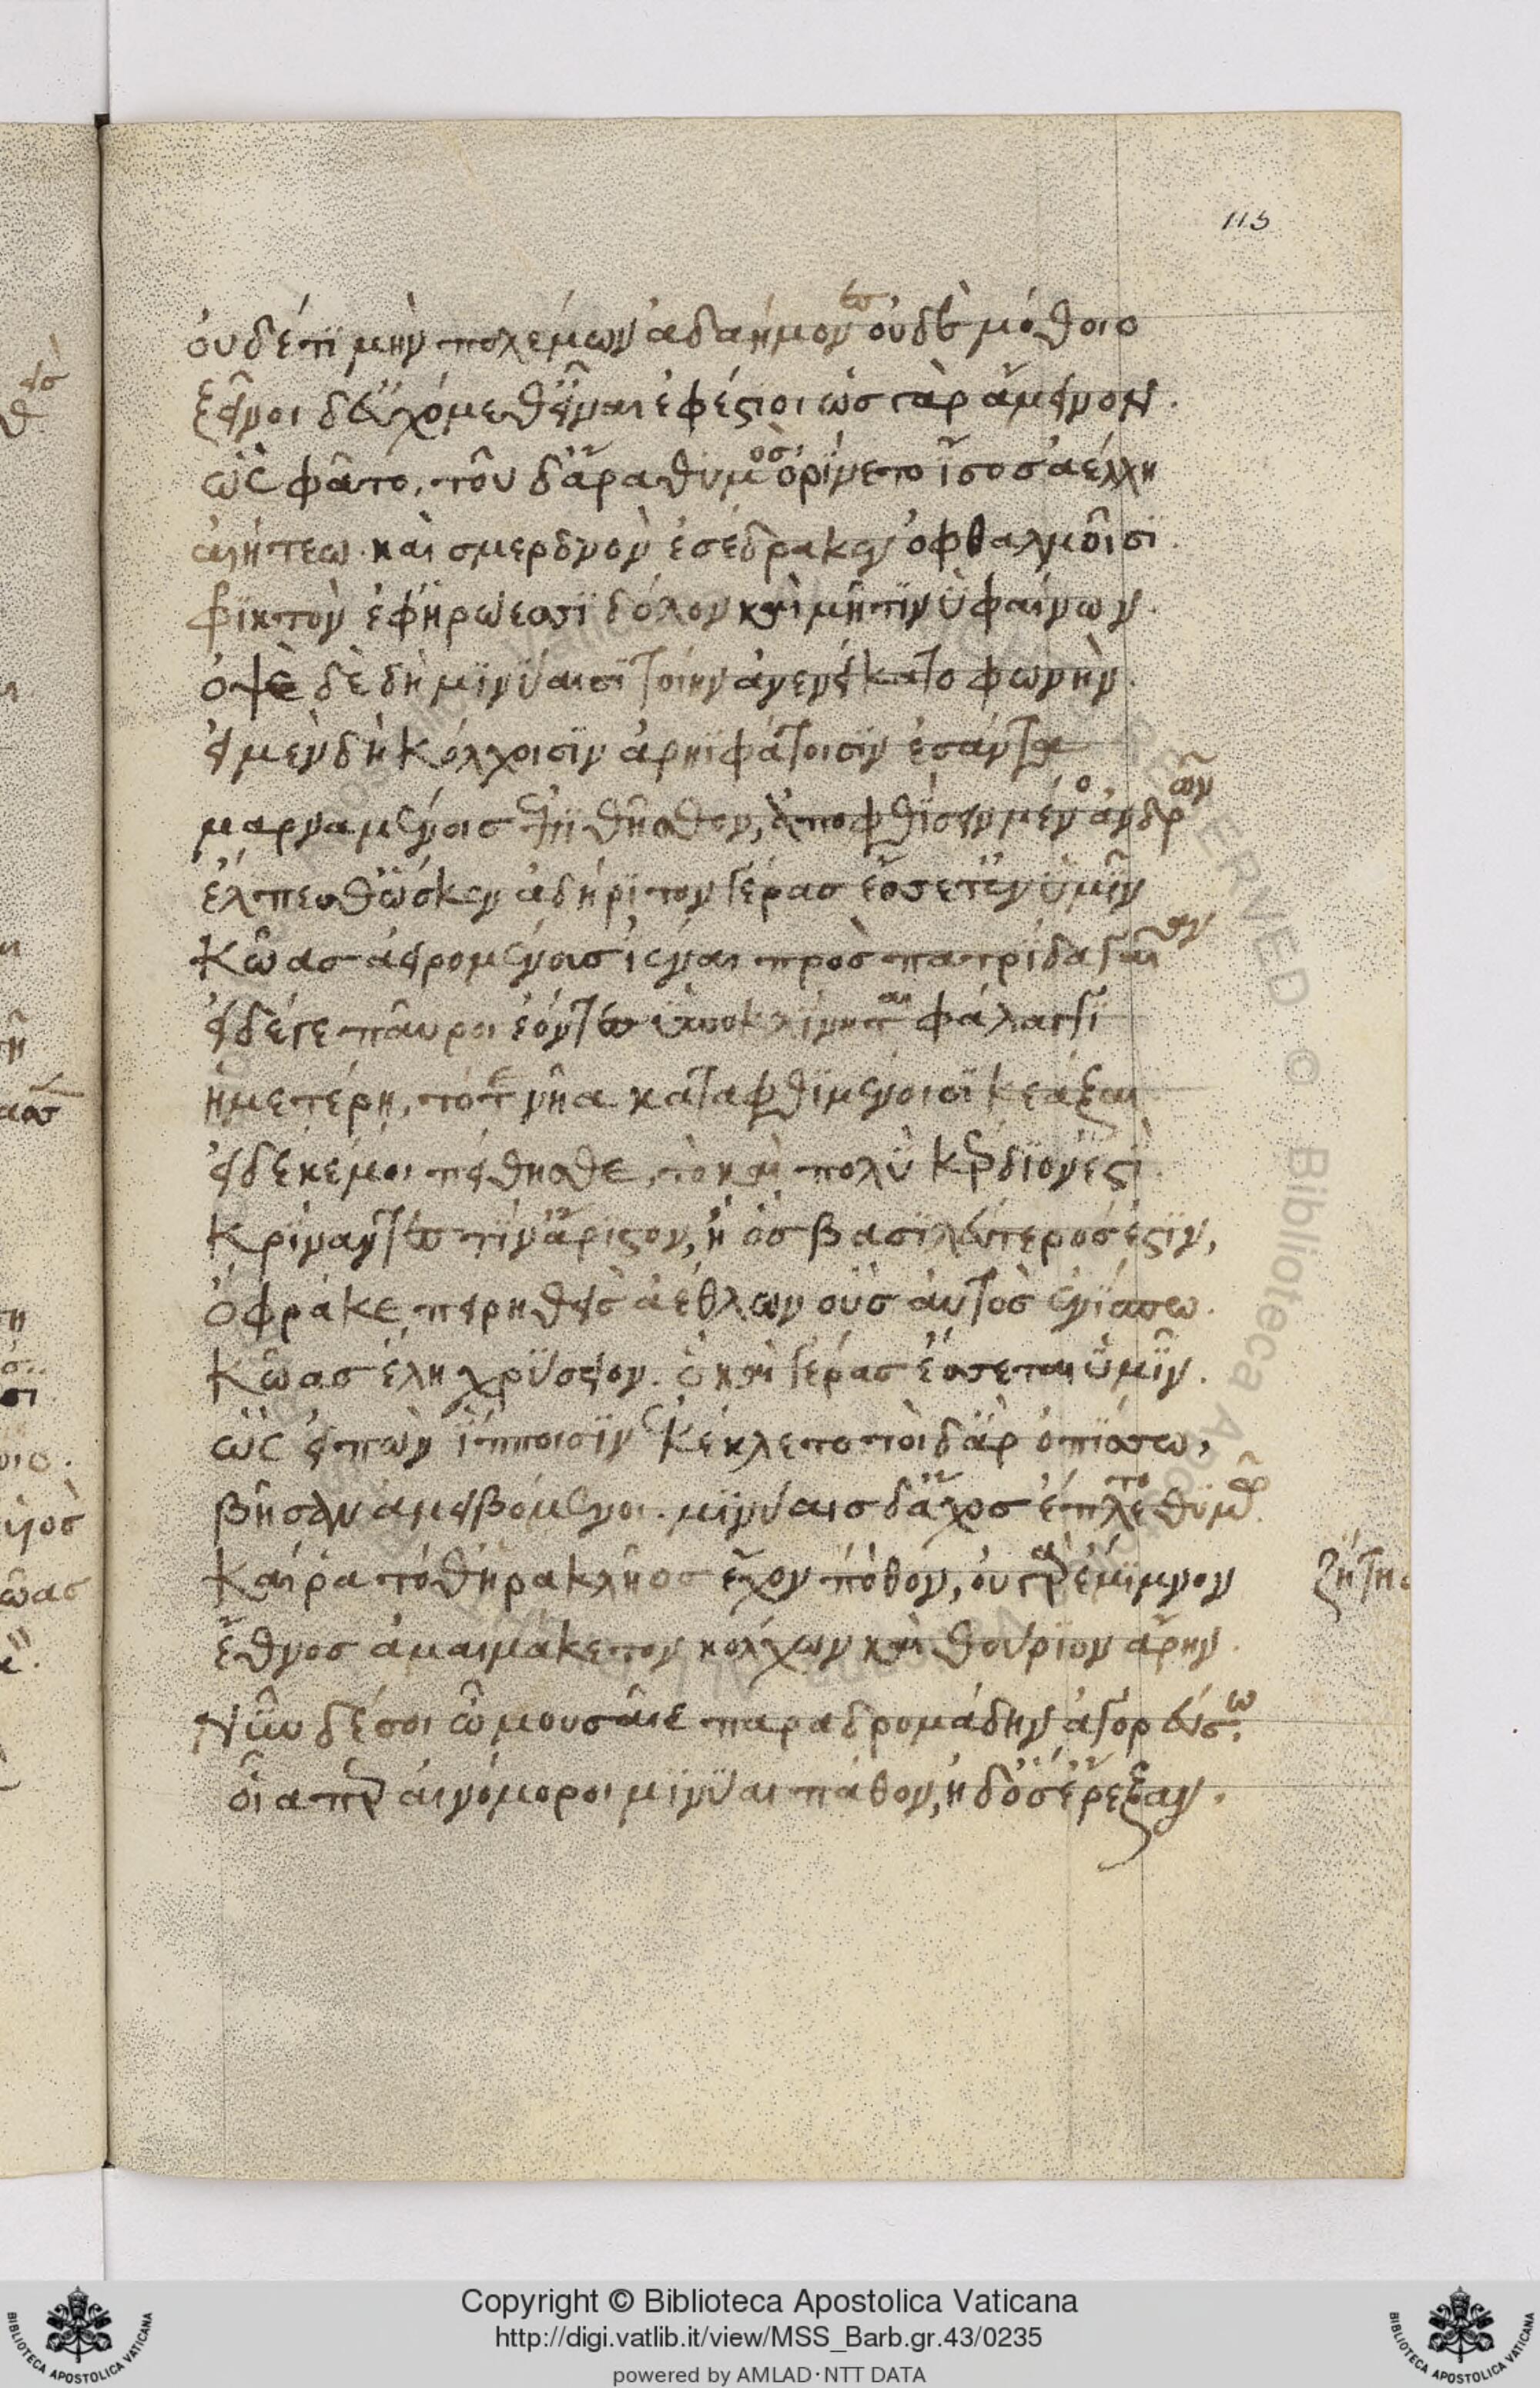 115
οὐδέ τι μὴν πολέμων ἀδαήμονες οὐδὲ μόθοιο
ξεῖνοι δ' εὐχόμεθ' εἶναι ἐφέστιοι ὡς γὰρ ἄμεινον.
ὣς φάτο, τοῦ δ' ἄρα θυμὸς ὀρίνετο ἶσος ἀέλλῃ
αἰήτεω. καὶ σμερδνὸν ἐσέδρακεν ὀφθαλμοῖσι.
φρικτὸν ἐφ' ἡρώεσσι δόλον καὶ μῆτιν ὑφαίνων.
ὀψὲ δὲ δὴ μινύαισι τοίην ἀνενείκατο φωνήν.
εἰ μὲν δὴ κόλχοισιν ἀρηϊφάτοισιν ἐσάντα
μαρναμένοις πείθησθον, ἀποφθίσειν μένος ἀνδρῶν
ἔλπεσθ' ὥς κεν ἀδήριτον γέρας ἔσσεται ὑμῖν
κῶας ἀειρομένοις ἰέναι πρὸς πατρίδα γαῖαν
εἰ δέ γε παῦροι ἐόντες ὑποκλίνητε φάλαγγι
ἡμετέρῃ, τότε νῆα καταφθιμένοισι κεάξαι
εἰ δέ κέ μοι πείθησθε, τὸ καὶ πολὺ κέρδιόν ἐστι.
κρίναντες τίν' ἄριστον, ἢ ὃς βασιλεύτερός ἐστιν,
ὄφρά κε πειρηθεὶς ἀέθλων οὓς αὐτὸς ἐνίσσω.
κῶας ἕλῃ χρύσειον. ὃ καὶ γέρας ἔσσεται ὑμῖν.
ὣς εἰπὼν ἵπποισιν κέκλετο τοὶ δ' ἂρ ὀπίσσω,
βῆσαν ἀμειβόμενοι. μινύαις δ' ἄχος ἔπλετο θυμῷ.
καί ῥα τόθ' ἡρακλῆος ἔχον πόθον, οὐ γὰρ ἔμιμνον
ἔθνος ἀμαιμάκετον κόλχων καὶ θούριον ἄρην.
νῦν δέ σοι ὦ μουσαῖε παραδρομάδην ἀγορεύσω.
οἷάπερ αἰνόμοροι μινύαι πάθον, ἠδ' ὅσ' ἔρεξαν.
Copyright © Biblioteca Apostolica Vaticana
http://digi.vatlib.it/view/MSS_Barb.gr.43/0235
powered by AMLAD·NTT DATA